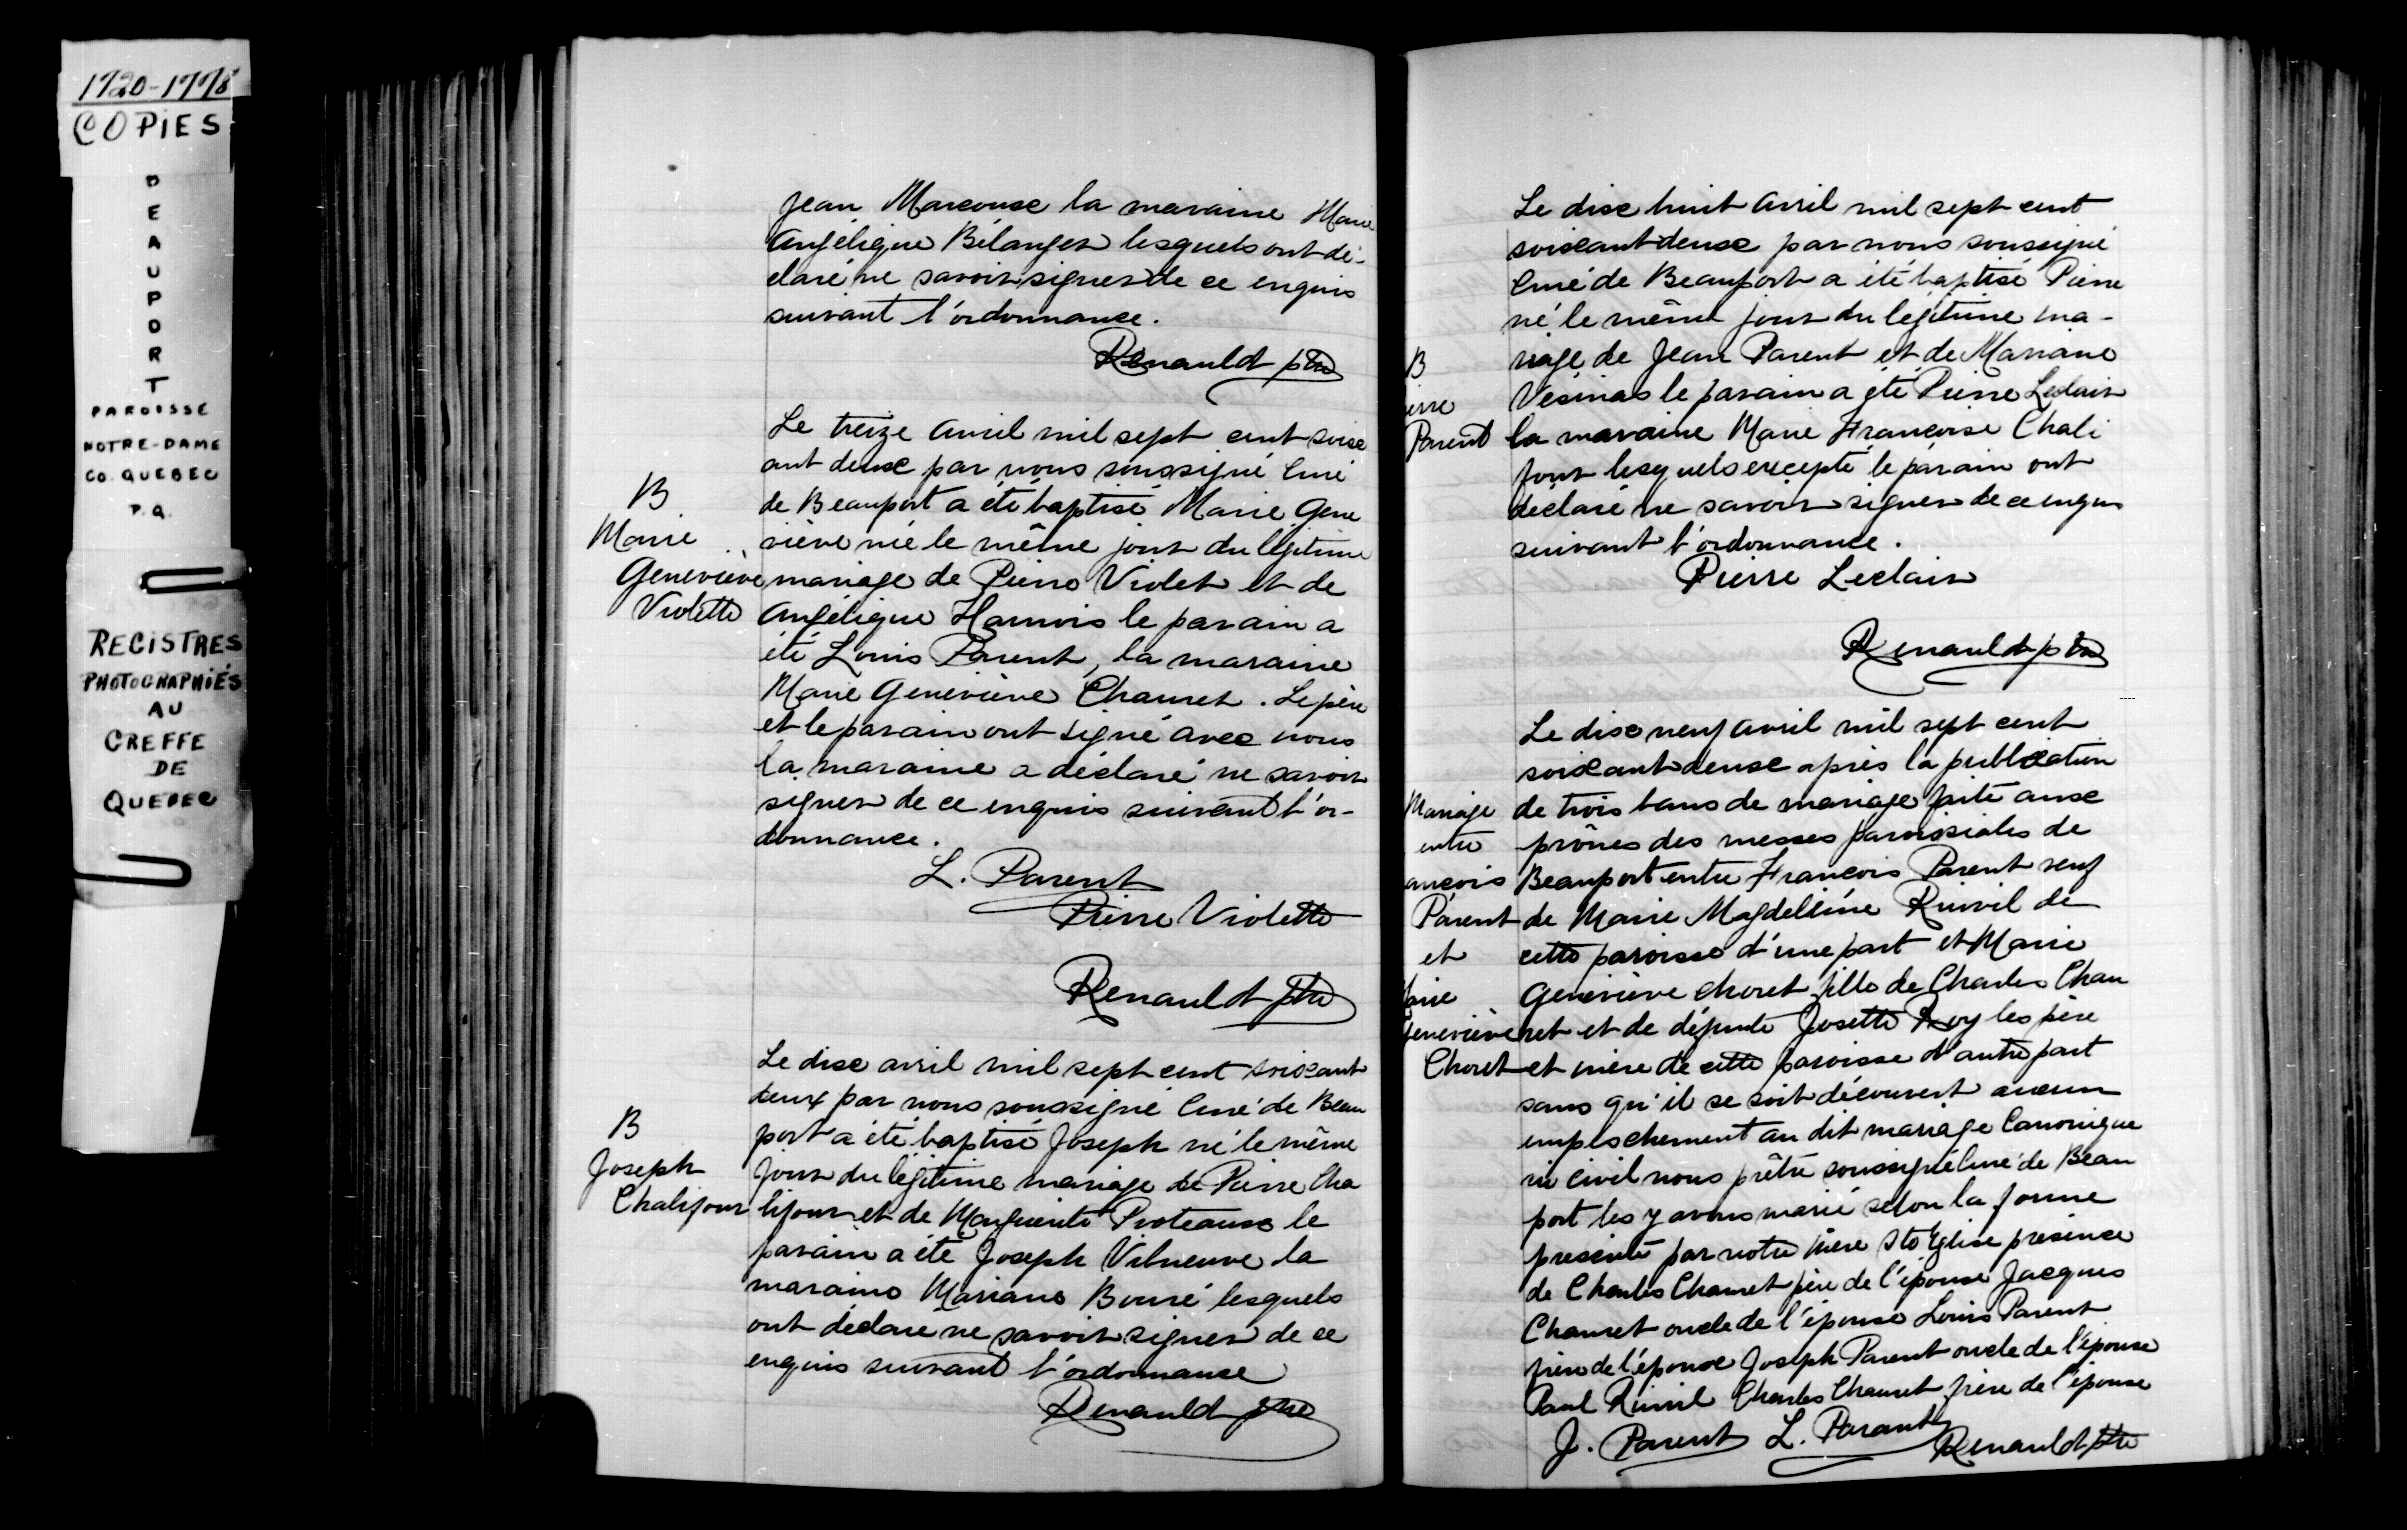 1720-1778
COPIES
BEAUPORT
PAROISSE
NOTRE-DAME
CO. QUEBEC
P.Q.
REGISTRES
PHOTOGRAPHIÉS
AU
GREFFE
DE
QUEBEC
Jean Marcouxe la maraine Marie
Angélique Bélanger lesquels ont dé-
claré ne savoir signer de ce enquis
suivant l'ordonnance.
Renauld ptre
Le treize avril mil sept cent soix
ant deux par nous soussigné Curé
de Beauport a été baptisé Marie Gene
viève née le même jour du légitime
mariage de Pierre Violet et de
Angélique Hamois le parain a
été Louis Parent, la maraine
Marie Geneviève Chauret. Le père
et le parain ont signé avec nous
la maraine a déclaré ne savoir
signer de ce enquis suivant l'or-
donnance.
B
Marie
Geneviève
Violette
L. Parent
Pierre Violette
Renauld ptre
Le dix avril mil sept cent soixant
deux par nous soussigné Curé de Beau
port a été baptisé Joseph né le même
jour du légitime mariage de Pierre Cha
lifour et de Marguerite Proteauxe le
parain a été Joseph Vilneuve la
maraine Mariane Bouré lesquels
ont déclare ne savoir signer de ce
enquis suivant l'ordonnance
B
Joseph
Chalifour
Renauld ptre
Le dix huit avril mil sept cent
soixant deux par nous soussigné
Curé de Beauport a été baptisé Pierre
né le même jour du légitime ma-
riage de Jean Parent et de Mariane
Vésinas le parain a été Pierre Leclair
la maraine Marie Françoise Chali
four lesquels excepté le parain ont
déclaré ne savoir signer de ce enquis
suivant l'ordonnance.
B
ierre
Parent
Pierre Leclair
Renauld ptre
Le dix neuf avril mil sept cent
soixant deux après la publication
de trois bans de mariage faite aux
prônes des messes paroissiales de
Beauport entre François Parent veuf
de Marie Magdelleine Rinvil de
cette paroisse d'une part et Marie
Geneviève choret fille de Charles Chau
ret et de défunte Josette Roy les père
et mère de cette paroisse d'autre part
sans qu'il se soit découvert aucun
empeschement au dit mariage Canonique
ni civil nous prêtre soussigné Curé de Beau
port les y avons marié selon la forme
prescrite par notre mère Ste Eglise presence
de Charles Chauret père de l'épouse Jacques
Chauret oncle de l'épouse Louis Parent
frère de l'épouxe Joseph Parent oncle de l'épouse
Paul Rinvil Charles Chauret frère de l'épouse
Mariage
entre
ançois
Parent
et
Marie
Geneviève
Choret
J. Parent L. Parant Renauld ptre